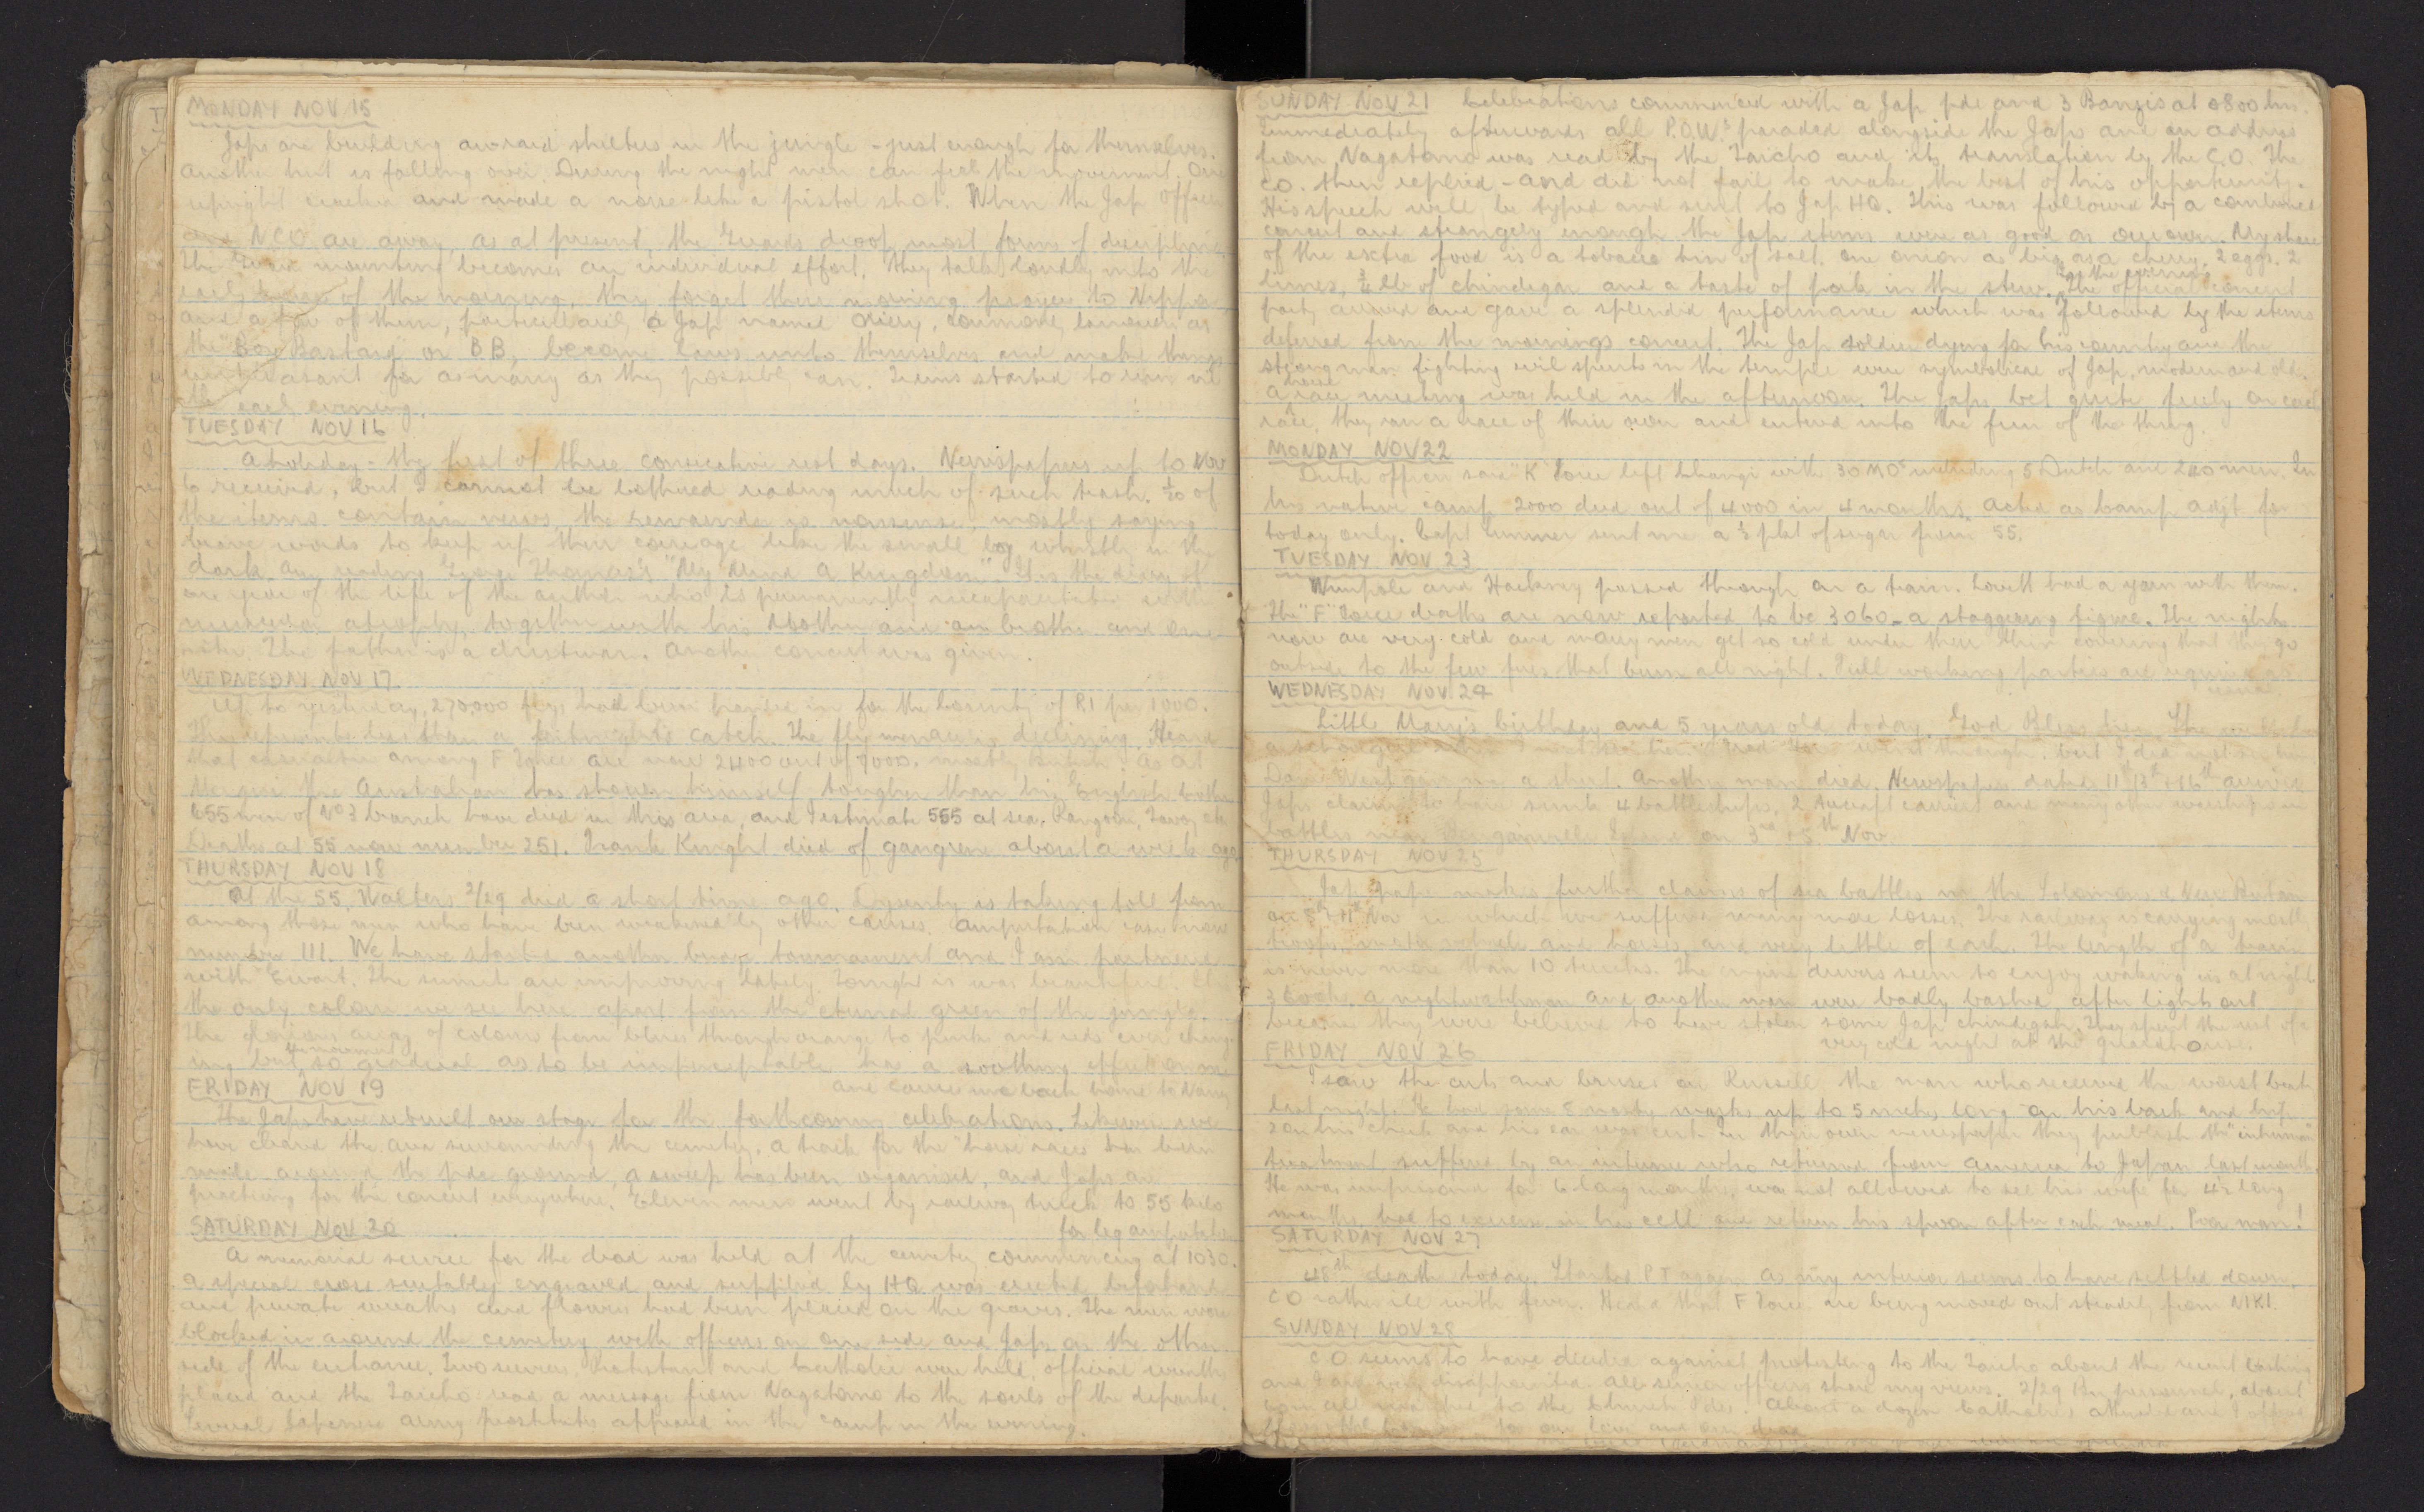 MONDAY NOV 15
Japs are building airraid shelters in the jungle - just enough for themselves.
Another hut is falling over. During the night men can feel the movement. One
upright cracked and made a noise like a pistol shot. When the Jap officer
and NCO are away, as at present, the Guards drop most forms of discipline.
The Guard mounting becomes an individual effort, they talk loudly into the
early hours of the morning, they forget their morning prayer to Nippon
and a few of them, particularly a Jap named commonly known as
the "Boy Bastard" or BB, become laws unto themselves and make things
unpleasant for as many as they possibly can. started to run
early evening.
TUESDAY NOV 16
A holiday - the first of three consecutive rest days. Newspapers up to Nov
received, but I cannot be bothered reading much of such trash. 1/20 of
the items contain news, the remainder is nonsense, mostly saying
brave words to keep up their courage like the small boy whistling in the
dark. Am reading George Thomas's "My Mind a Kingdom". It is the diary of
one year of the life of the author who is permanently incapacitated with
muscular atrophy, together with his Mother and a brother and one
sister. The father is a dustman. Another concert was given.
WEDNESDAY NOV 17
Up to yesterday, 270,000 flys had been handed in for the bounty of R1 per 1000.
This represents less than a fortnight's catch. The fly menace is declining. Heard
that casualties among F Force are now 2400 out of 7000, mostly British. As at
the Australian has shown himself tougher than his English brother.
655 men of No 3 branch have died in this area, and I estimate 555 at sea, Rangoon, Tavoy etc
Deaths at 55 now number 251. Frank Knight died of gangrene about a week ago
THURSDAY NOV 18
At the 55, Walters 2/29 died a short time ago. Dysentry is taking toll from
among those men who have been weakened by other causes. Amputation cases now
number 111. We have started another bridge tournament and I am partnered
with Ewart. The sunsets are improving lately. Tonight is was beautiful. It is
the only colour we see here apart from the eternal green of the jungle.
The glorious array of colours from blues through orange to pinks and reds ever chang-
ing but so gradual as to be imperceptable has a soothing effect on one
and carries me back home to
FRIDAY NOV 19
The Japs have rebuilt our stage for the forthcoming celebrations. Likewise we
have cleared the area surrounding the cemetery, a track for the "horse races" has been
made around the pde ground, a sweep has been organised, and Japs are
practising for the concert everywhere. Eleven men went by railway truck to 55 kilo
for leg amputation
SATURDAY NOV 20
A memorial service for the dead was held at the cemetery commencing at 1030.
A special cross suitably engraved and supplied by HQ was erected beforehand
and private wreaths and flowers had been placed on the graves. The men were
blocked in around the cemetery with officers on one side and Japs on the other
side of the entrance. Two services, Protestant and Catholic were held, official wreaths
placed and the Taicho read a message from Nagatomo to the souls of the departed.
Several Japanese army prostitutes appeared in the camp in the evening.
SUNDAY NOV 21 Celebrations commenced with a Jap pde and 3 Banzis at 0800 hrs.
Immediately afterwards all P.O.W.s paraded alongside the Japs and an address
from Nagatomo was read by the Taicho and its translation by the C.O. The
CO. then replied - and did not fail to make the best of his opportunity.
His speech will be typed and sent to Jap HQ. This was followed by a combined
concert and strangely enough the Jap items were as good as our own. My share
of the extra food is a tobacco tin of salt, one onion as big as a cherry, 2 eggs, 2
limes, ½ lb of chindegar and a taste of pork in the stew. In the evening the official concert
party arrived and gave a splendid performance which was followed by the items
deferred from the mornings concert. The Jap soldier dying for his country and the
strong man fighting evil spirits in the temple were symbolical of Jap, modern and old.
A horse race meeting was held in the afternoon. The Japs bet quite freely on each
race, they ran a race of their own and entered into the fun of the thing.
MONDAY NOV 22
Dutch officer said "K" Force left Changi with 30 MOs including 5 Dutch and 200 men. In
his native camp 2000 died out of 4000 in 4 months. Acted as Camp Adjt for
today only. Capt sent me a ½ pkt of sugar from 55.
TUESDAY NOV 23
Wimpole and Hackney passed through on a train. Lovett had a yarn with them.
The "F" Force deaths are now reported to be 3060 - a staggering figure. The nights
now are very cold and many men get so cold under their thin covering that they go
outside to the few fires that burn all night. Full working parties are required as
usual
WEDNESDAY NOV 24
Little Mary's birthday and 5 years old today. God Bless her. She
a schoolgirl when I next see her. went through, but I did not see him
Dave West gave me a shirt. Another man died. Newspapers dated 11th 13th & 16th arrived
Japs claim to have sunk 4 battleships, 2 aircraft carriers and many other warships in
battles near Bouganville Island on 3rd & 5th Nov.
THURSDAY NOV 25
Jap paper makes further claims of sea battles in the Solomons & New Britain
on 8th & 11th Nov in which we suffered many more losses. The railway is carrying mostly
troops, motor vehicles and horses, and very little of each. The length of a train
is never more than 10 trucks. The engine drivers seem to enjoy waking us at night
3 cooks, a nightwatchman and another man were badly bashed after lights out
because they were believed to have stolen some Jap chindegah. They spent the rest of a
very cold night at the guardhouse.
FRIDAY NOV 26
I saw the cuts and bruises on Russell the man who received the worst beat
last night. He had some 8 nasty marks up to 5 inches long on his back and hip
2 on his cheek and his ear was cut. In their own newspaper they publish the "inhuman"
treatment suffered by an internee who returned from America to Japan last month.
He was imprisoned for 6 long months, was not allowed to see his wife for 4½ long
months, had to exercise in his cell and return his spoon after each meal. Poor man!
SATURDAY NOV 27
48th death today. Started P T again as my interior seems to have settled down.
CO rather ill with fever. Heard that F Force are being moved out steadily from NIKI.
SUNDAY NOV 28
CO seems to have decided against protesting to the Taicho about the recent bashing
and I am very disappointed. All senior officers share my views. 2/29 Bn personnel, about
to the Church Pde. About a dozen Catholics attended and I
to our love and our dead